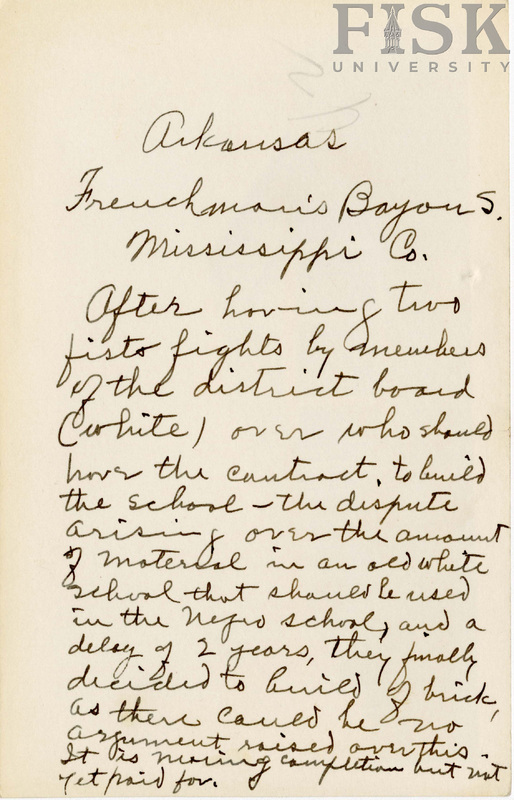 FISK
UNIVERSITY
Arkansas
Frenchman's Bayou S.
Mississippi Co.
After having two
fists fights by members
of the district board
(white) over who should
have the contract, to build
the school - the dispute
arising over the amount
of material in an old white
school that should be used
in the Negro school, and a
delay of 2 years, they finally
decided to build of brick,
as there could be no
argument raised over this.
It is nearing completion but not
yet paid for.